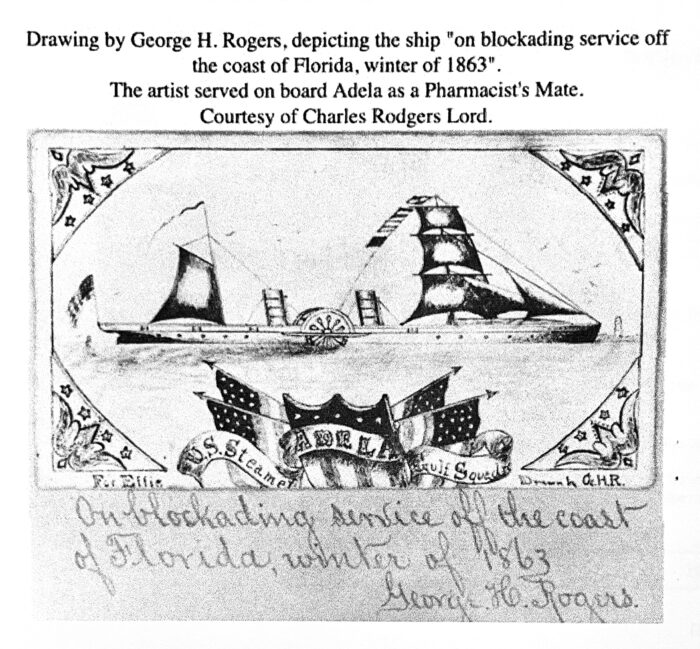 Drawing by George H. Rogers, depicting the ship "on blockading service off
the coast of Florida, winter of 1863".
The artist served on board Adela as a Pharmacist's Mate.
Courtesy of Charles Rodgers Lord.
U.S. Steamer
ADELA
Gulf Squadr
For Effie
Drawn G.H.R.
On blockading service off the coast
of Florida, winter of 1863
George H. Rogers.